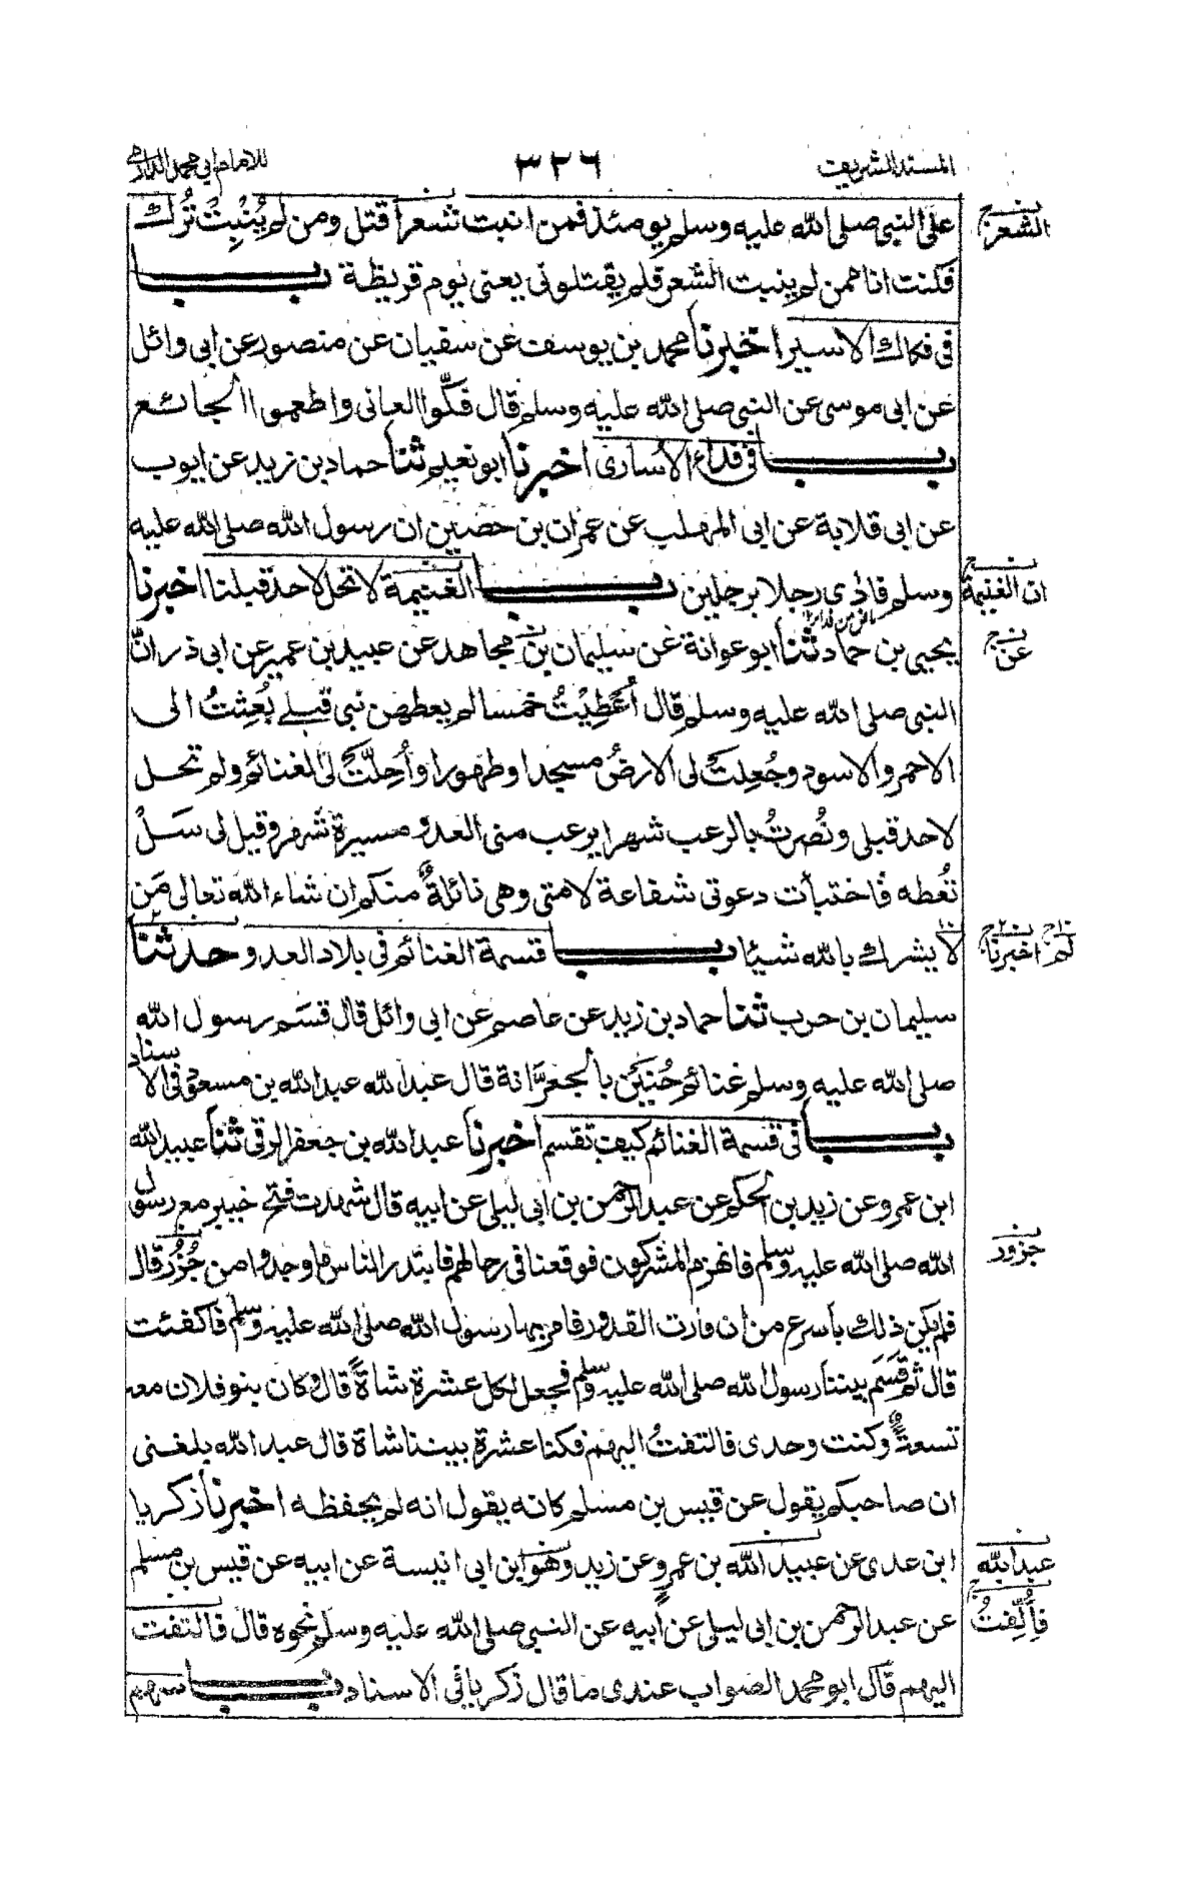 المسند الشريف ٣٢٦ للامام ابي محمد الدارمي
على النبي صلى الله عليه وسلم يومئذ فمن انبت شعرا قتل ومن لم يُنبِتْ تُرك
الشعر
فكنت انا ممن لم ينبت الشعر فلم يقتلوني يعني يوم قريظة باب
في فكاك الاسير اخبرنا محمد بن يوسف عن سفيان عن منصور عن ابي وائل
عن ابي موسى عن النبي صلى الله عليه وسلم قال فكّوا العاني واطعموا الجائع
باب في فداء الاسارى اخبرنا ابو نعيم ثنا حماد بن زيد عن ايوب
عن ابي قلابة عن ابي المهلب عن عمران بن حصين ان رسول الله صلى الله عليه
وسلم فادى رجلا برجلين باب الغنيمة لا تحل لاحد قبلنا اخبرنا
ان الغنيمة
يحيى بن حماد ثنا ابو عوانة عن سليمان بن مجاهد عن عبيد بن عمير عن ابي ذر انّ
عن
النبي صلى الله عليه وسلم قال اُعْطِيْتُ خمسا لم يعطهن نبي قبلي بُعِثتُ الى
الاحمر والاسود وجُعِلتْ لي الارضُ مسجدا وطهورا واُحِلّتْ لي الغنائم ولم تحل
لاحد قبلي ونُصِرتُ بالرعب شهرا يرعب مني العدو مسيرة شهر وقيل لي سَلْ
تُعطه فاختبأت دعوتي شفاعة لامتي وهي نائلةٌ منكم ان شاء الله تعالى مَن
لا يشرك بالله شيئا باب قسمة الغنائم في بلاد العدو حدثنا
لم اخبرنا
سليمان بن حرب ثنا حماد بن زيد عن عاصم عن ابي وائل قال قسَم رسول الله
صلى الله عليه وسلم غنائم حُنَيْن بالجعرَّانة قال عبد الله عبد الله بن مسعود في الاسناد
باب في قسمة الغنائم كيف تقسم اخبرنا عبد الله بن جعفر الرقي ثنا عبيد الله
ابن عمرو عن زيد بن الحكم عن عبد الرحمن بن ابي ليلى عن ابيه قال شهدت فتح خيبر مع رسول
الله صلى الله عليه وسلم فانهزم المشركون فوقعنا في رحالهم فابتدر الناس ما وجدوا من جُزُر قال
جزور
فلم يكن ذلك باسرع من ان فارت القدور فامر بها رسول الله صلى الله عليه وسلم فاكفئت
قال ثم قَسَم بيننا رسول الله صلى الله عليه وسلم فجعل لكل عشرة شاةً قال وكان بنو فلان معه
تسعةٌ وكنت وحدي فالتفتُ اليهم فكنا عشرة بيننا شاة قال عبد الله بلغني
ان صاحبكم يقول عن قيس بن مسلم كانه يقول انه لم يحفظه اخبرنا زكريا
ابن عدي عن عبيد الله بن عمرو عن زيد وهو ابن ابي انيسة عن ابيه عن قيس بن مسلم
عبد الله
عن عبد الرحمن بن ابي ليلى عن ابيه عن النبي صلى الله عليه وسلم نحوه قال فالتفت
فاُلِّفتُ
اليهم قال ابو محمد الصواب عندي ما قال زكريا في الاسناد باب سهم